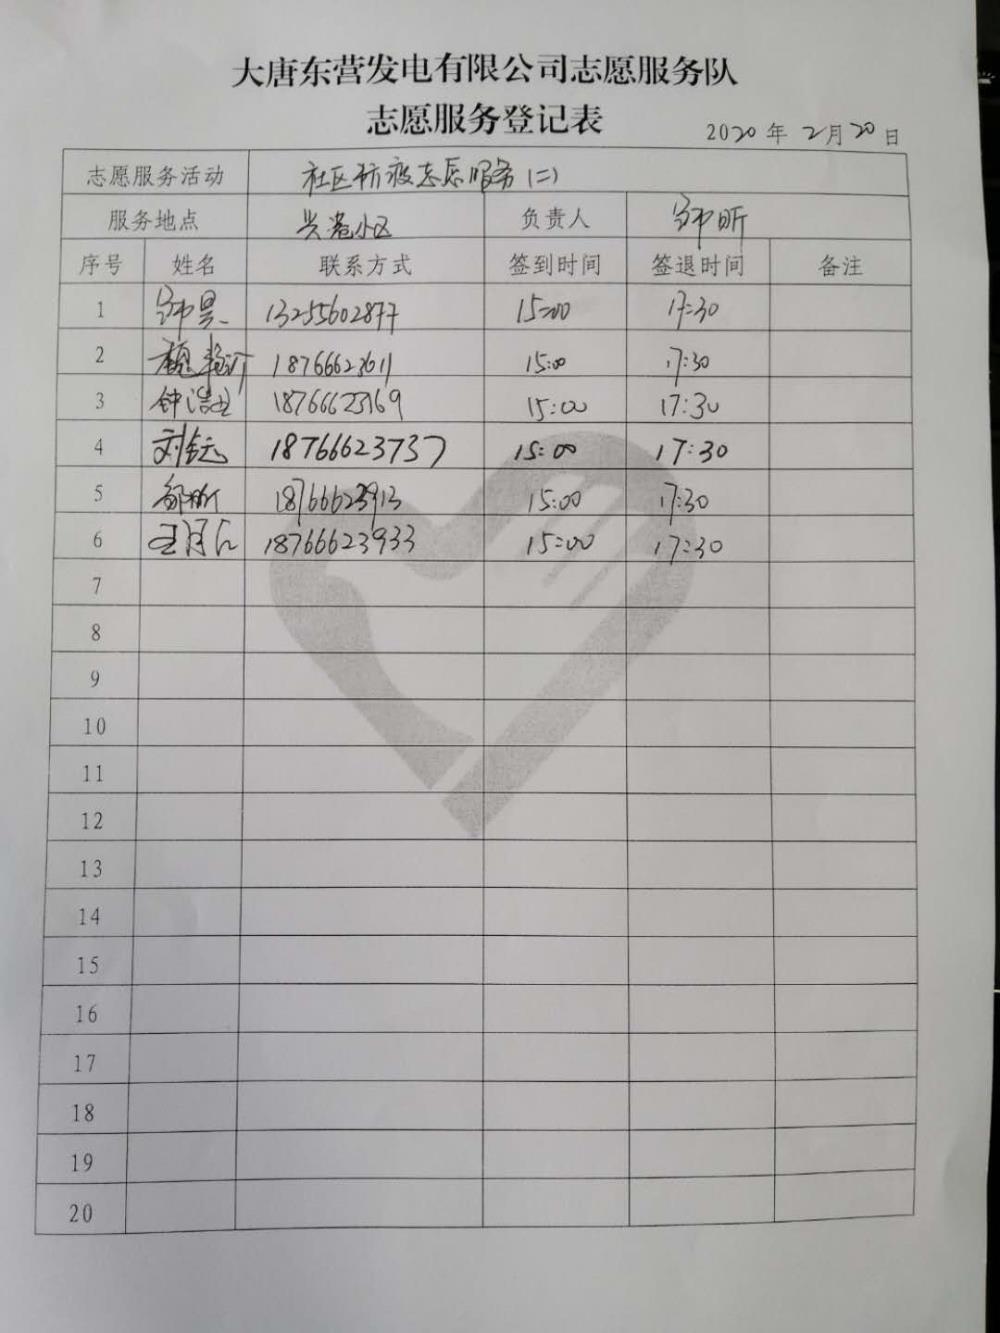 大唐东营发电有限公司志愿服务队
志愿服务登记表
2020年2月20日
志愿服务活动 社区防疫志愿服务(二)
服务地点 兴港小区 负责人
序号 姓名 联系方式 签到时间 签退时间 备注
1 13255602877 15:00 17:30
2 18766623611 15:00 17:30
3 18766623169 15:00 17:30
4 18766623737 15:00 17:30
5 18766623913 15:00 17:30
6 18766623933 15:00 17:30
7
8
9
10
11
12
13
14
15
16
17
18
19
20